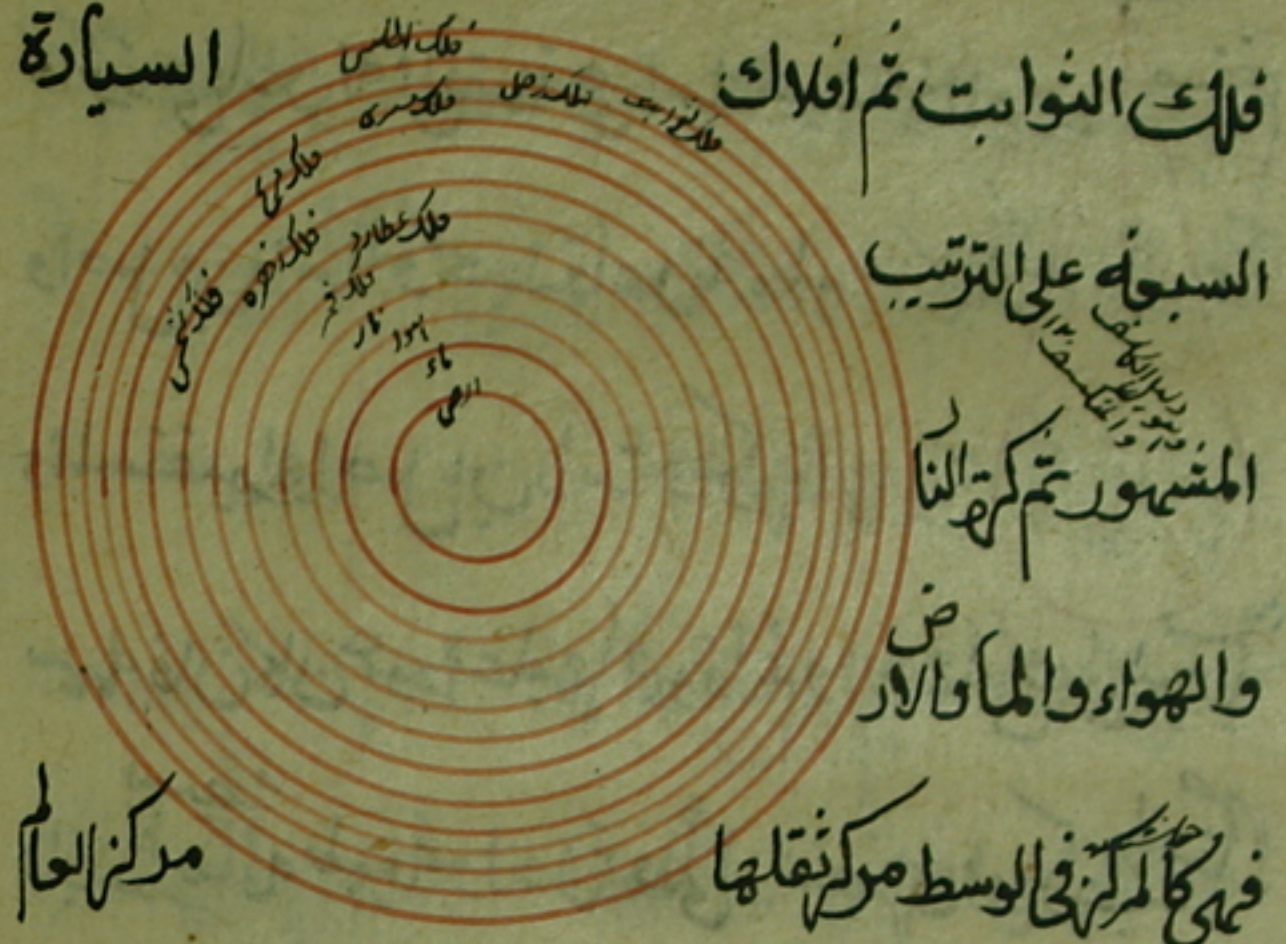 فلك الثوابت ثم افلاك السيارة
السبعه على الترتيب
المشهور ثم كرة النار
والهواء والما والارض
فهى كالمركز فى الوسط مركز ثقلها مركز العالم
فلك اطلس
فلك ثوابت
فلك زحل
فلك مشترى
فلك مريخ
فلك شمس
فلك زهره
فلك عطارد
فلك قمر
نار
هوا
ماء
ارض